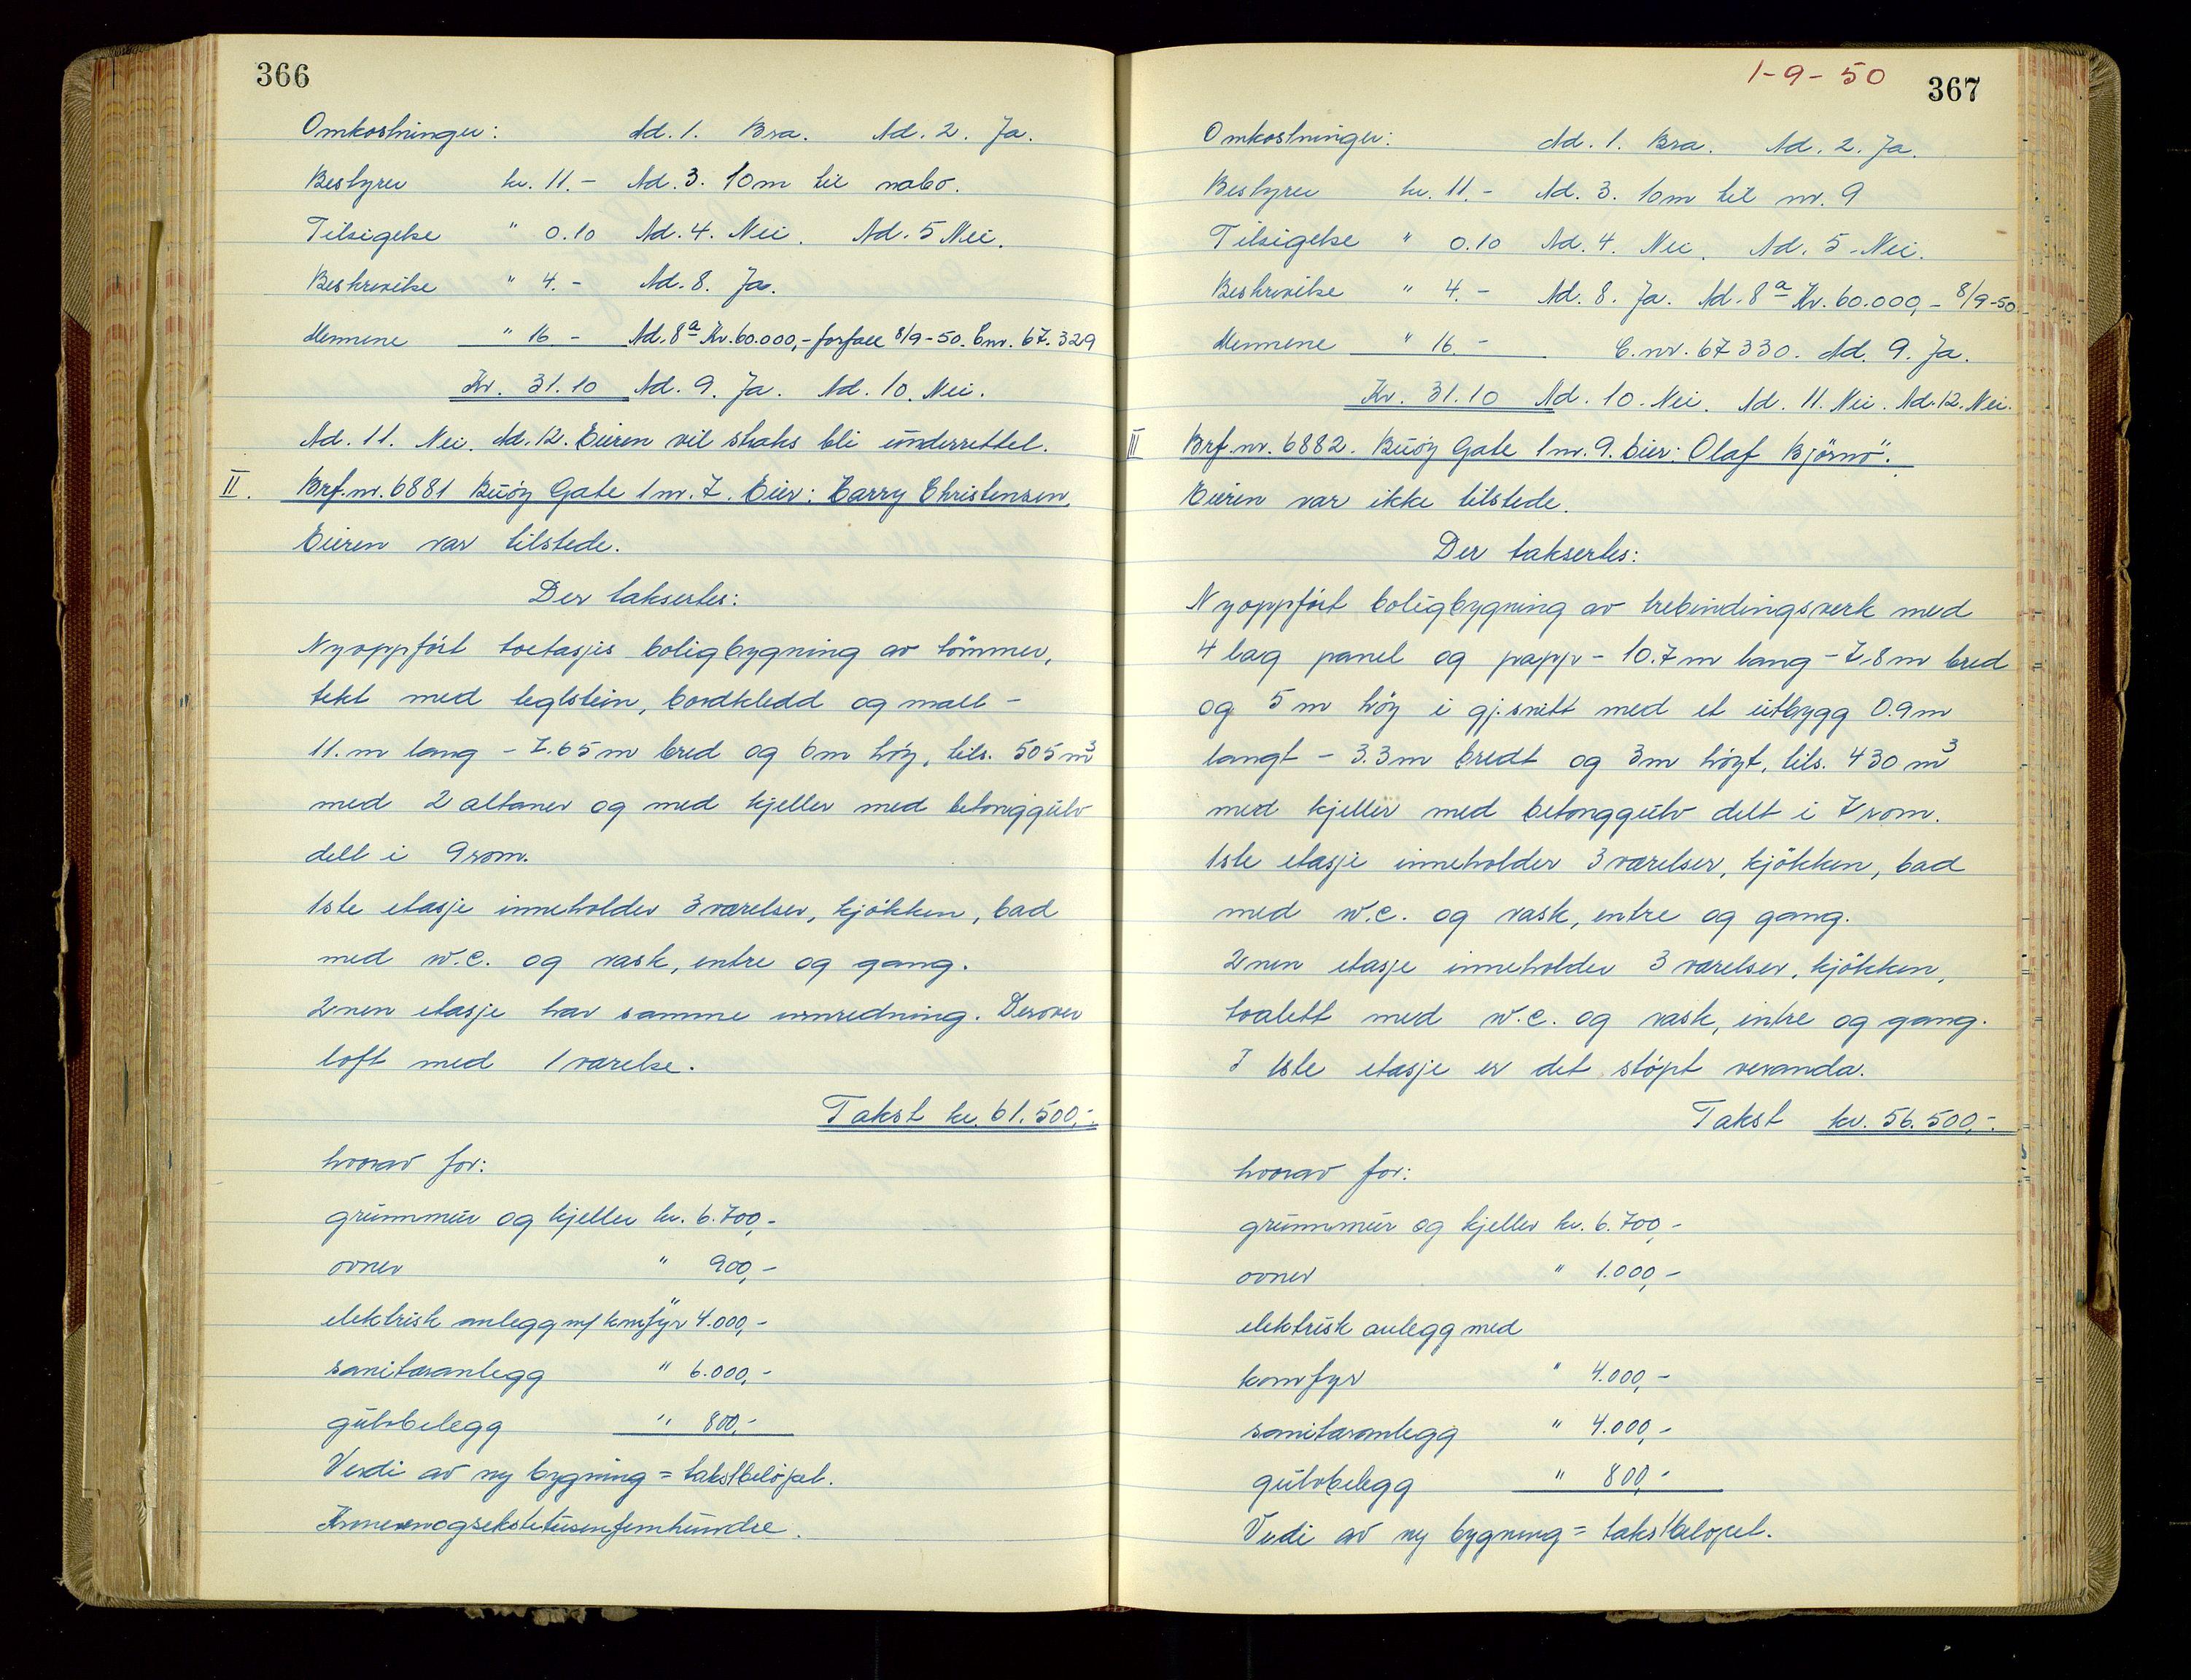 366
Omkostninger: Ad. 1. Bra. Ad. 2. Ja.
Bestyrer kr. 11.- Ad. 3. 10m til nabo.
Tilsigelse " 0.10 Ad. 4. Nei. Ad. 5 Nei.
Beskrivelse " 4.- Ad. 8. Ja.
Mennene " 16 - Ad. 8a Kr. 60.000,- forfall 8/9-50. C.nr. 67.329
Kr. 31.10 Ad. 9. Ja. Ad. 10. Nei.
Ad. 11. Nei. Ad. 12. Eieren vil straks bli underrettet.
II. Brf.nr. 6881 Buöy Gate 1 nr. 7. Eier: Harry Christensen.
Eieren var tilstede.
Der taksertes:
Nyoppført toetasjes boligbygning av tömmer,
tekt med teglstein, bordkledd og malt -
11. m lang - 7.65 m bred og 6m høy, tils. 505 m3
med 2 altaner og med kjeller med betonggulv
delt i 9 rom.
1ste etasje inneholder 3 værelser, kjökken, bad
med w.c. og vask, entre og gang.
2nen etasje har samme innredning. Derover
loft med 1 værelse.
Takst kr. 61.500,-
hvorav for:
grunnmur og kjeller kr. 6.700,-
ovner " 900,-
elektrisk anlegg m/ komfyr " 4.000,-
sanitæranlegg " 6.000,-
gulvbelegg " 800,-
Verdi av ny bygning = takstbeløpet.
Kronerenogsekstitusenfemhundre.
1-9-50 367
Omkostninger: Ad. 1. Bra. Ad. 2. Ja.
Bestyrer kr. 11.- Ad. 3. 10m til nr. 9
Tilsigelse " 0.10 Ad. 4. Nei. Ad. 5. Nei.
Beskrivelse " 4.- Ad. 8. Ja. Ad. 8a Kr. 60.000,- 8/9-50.
Mennene " 16.- C.nr. 67330. Ad. 9. Ja.
Kr. 31.10 Ad. 10. Nei. Ad. 11. Nei. Ad. 12. Nei.
III Brf.nr. 6882. Buöy Gate 1 nr. 9. Eier: Olaf Björnö.
Eieren var ikke tilstede.
Der taksertes:
Nyoppført boligbygning av trebindingsverk med
4 lag panel og papp - 10.7 m lang - 7.8 m bred
og 5 m høy i gj.snitt med et utbygg 0.9 m
langt - 3.3m bredt og 3m høyt, tils. 430 m3
med kjeller med betonggulv delt i 7 rom.
1ste etasje inneholder 3 værelser, kjökken, bad
med w.c. og vask, entre og gang.
2nen etasje inneholder 3 værelser, kjökken,
toalett med w.c. og vask, entre og gang.
I 1ste etasje er det støpt veranda.
Takst kr. 56.500,-.
hvorav for:
grunnmur og kjeller kr. 6.700,-
ovner " 1.000,-
elektrisk anlegg med
komfyr " 4.000,-
sanitæranlegg " 4.000,-
gulvbelegg " 800,-
Verdi av ny bygning = takstbeløpet.